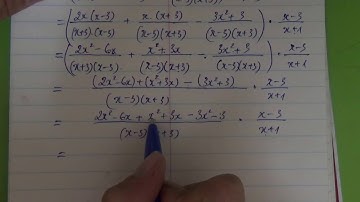 = (2x(x-3)/(x+3)(x-3) + x(x+3)/(x-3)(x+3) - 3x²+3/(x-3)(x+3)) · x-3/x+1
= (2x²-6x/(x+3)(x-3) + x²+3x/(x-3)(x+3) - 3x²+3/(x-3)(x+3)) · x-3/x+1
= (2x²-6x)+(x²+3x) - (3x²+3)/(x-3)(x+3) · x-3/x+1
= 2x²-6x + x²+3x - 3x²-3/(x-3)(x+3) · x-3/x+1
=